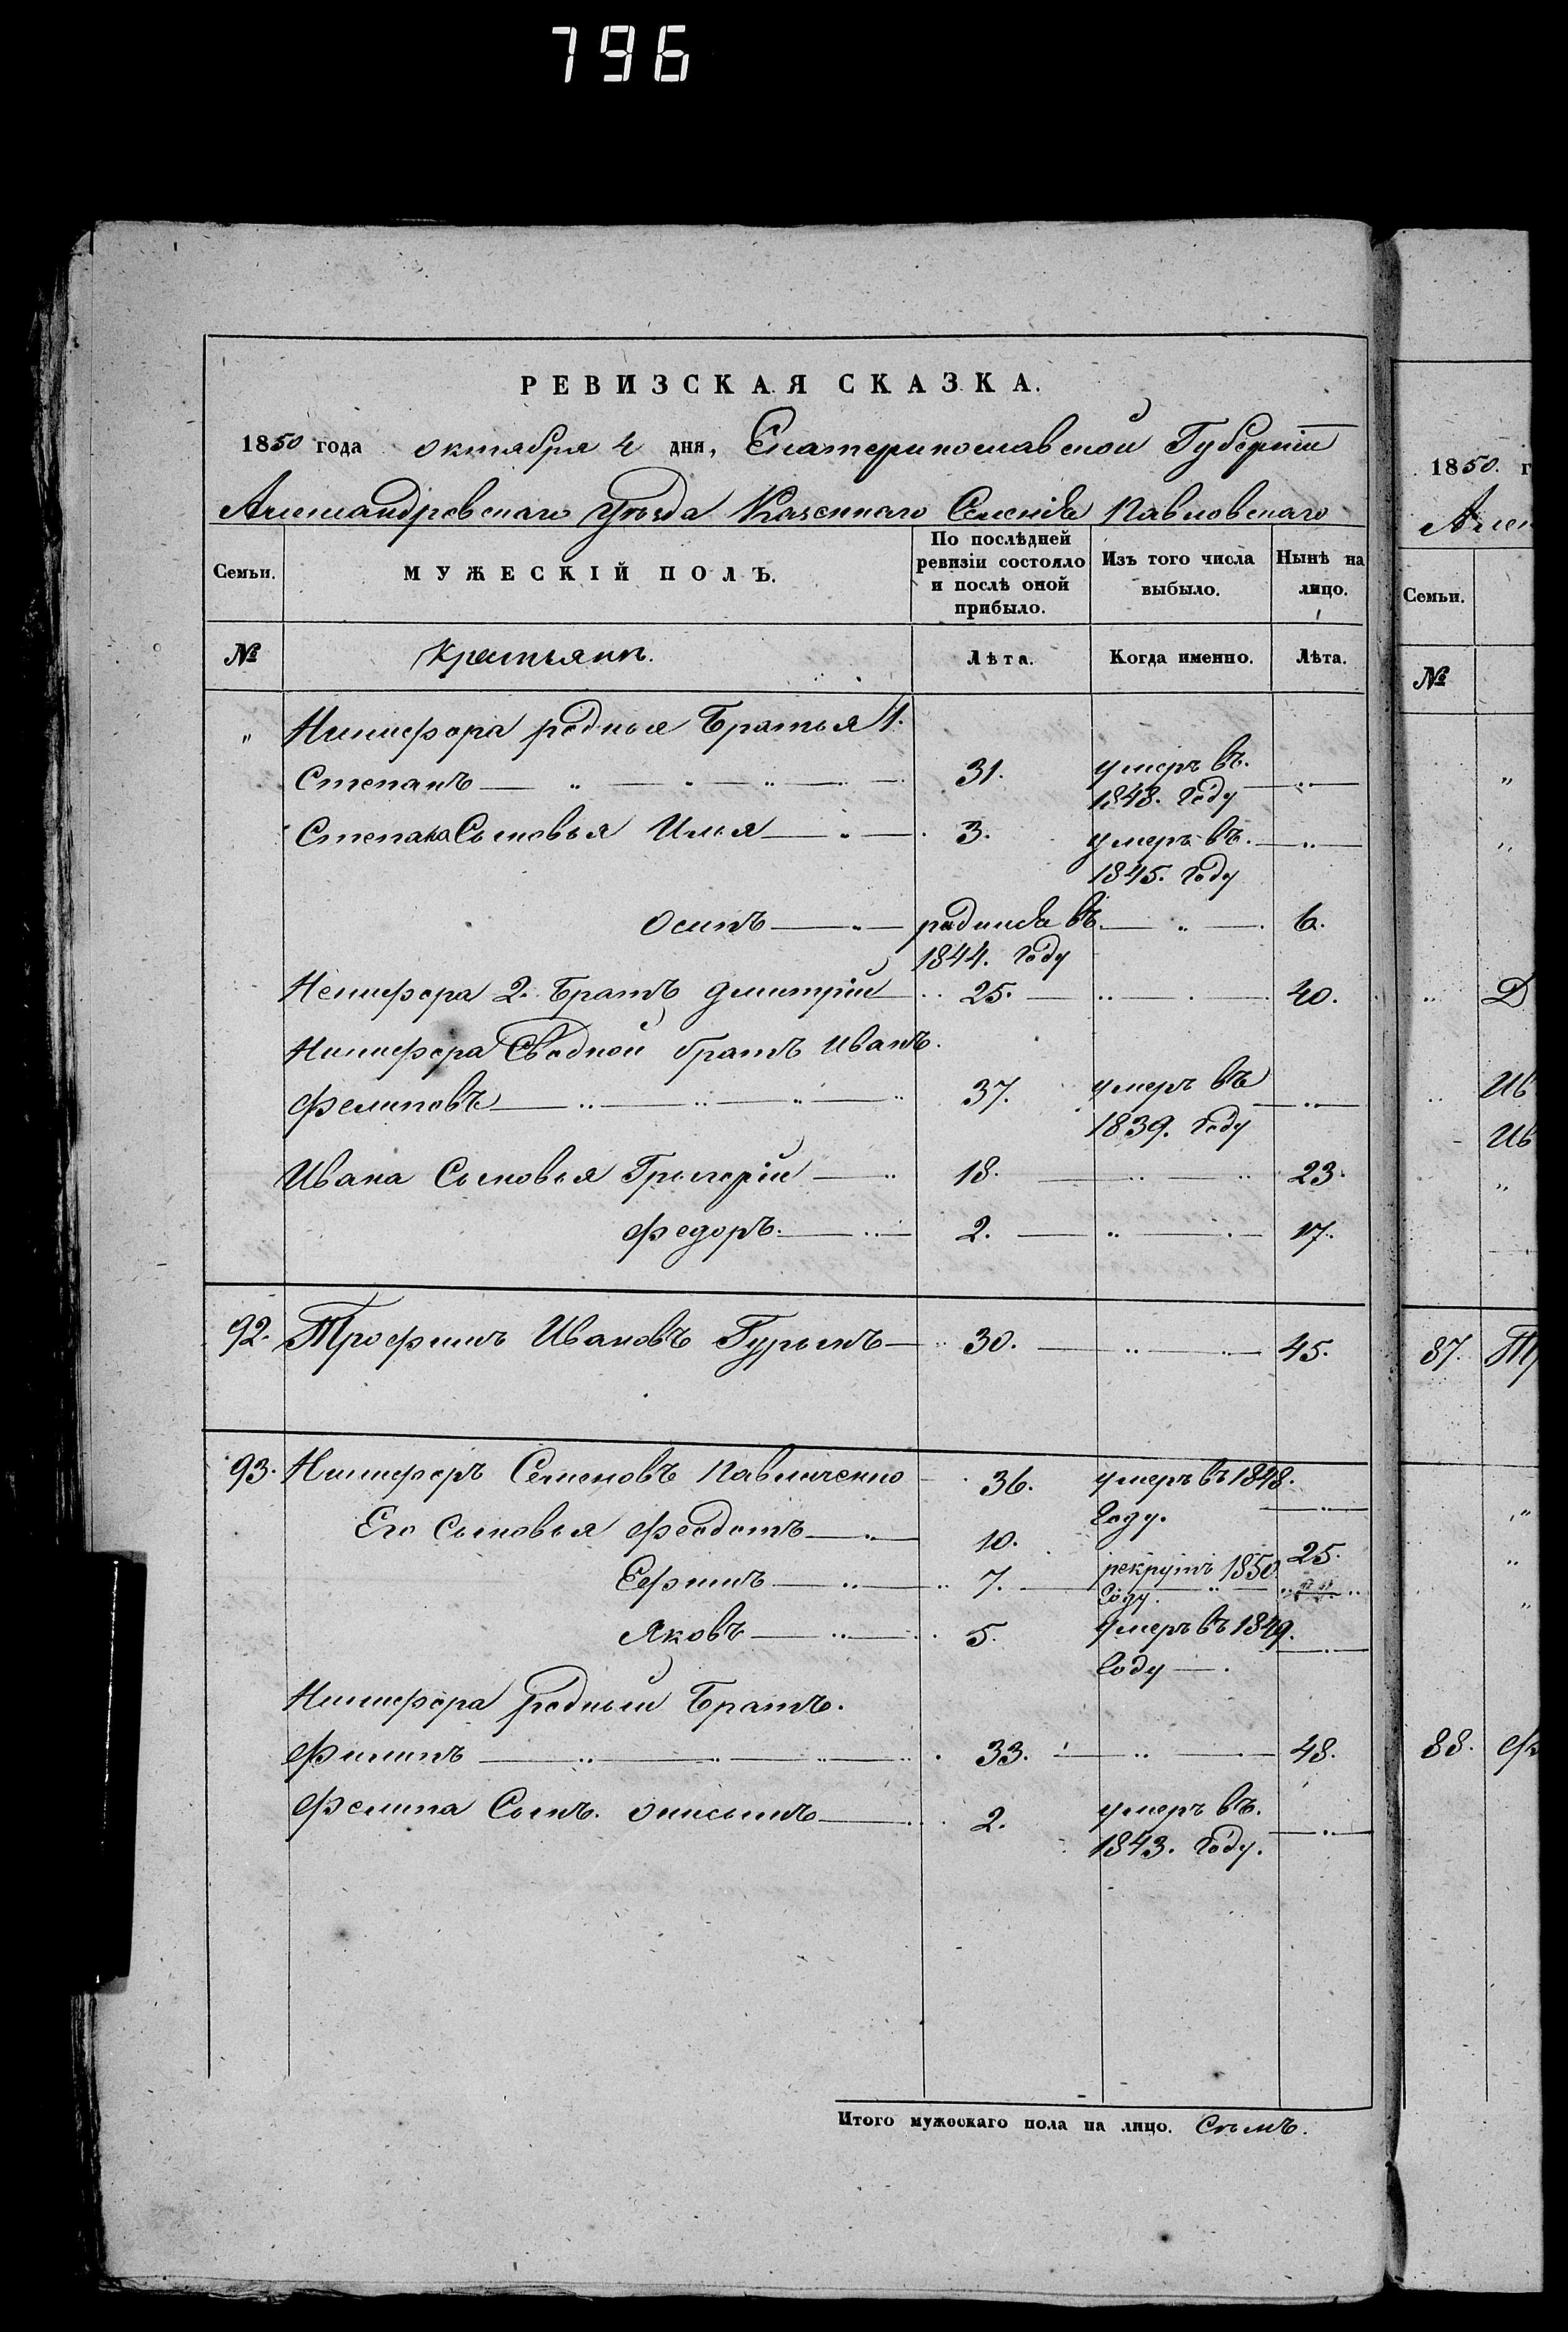 796
РЕВИЗСКАЯ СКАЗКА.
1850 года октября 4 дня, Екатеринославской Губерніи
Александровскаго уѣзда Казеннаго Селенія Павловскаго
Семьи.
МУЖЕСКІЙ ПОЛЪ.
По послѣдней ревизіи состояло и послѣ оной прибыло.
Изъ того числа выбыло.
Нынѣ на лицо.
№ Крестьянъ. Лѣта. Когда именно. Лѣта.
" Никифора родные Братья 1.
Степанъ — " — " — " — 31. умеръ въ. — " —
1848. Году
Степана Сыновья Илья — " — 3. умеръ въ. — " —
1845. Году
Осипъ — " — родился въ. — " — 6.
1844. Году
Некифора 2. Братъ Дмитрій — 25. — " — 40.
Никифора Сводной братъ Иванъ.
Фелиповъ — " — " — " — " 37. умеръ въ — " —
1839. Году
Ивана Сыновья Григорій — " 18. — " — " 23.
Федоръ. — " — 2. — " — 17.
92. Трофимъ Ивановъ Гурынъ — 30. — " — 45.
93. Никифоръ Семеновъ Павличенко 36. умеръ въ 1848.
Году. — " —
Его Сыновья Феодотъ — " — 10. 25.
Ефимъ — " — 7. — рекрутъ 1850
Году.
Яковъ — " — 5. Умеръ въ 1849.
Году — " —
Никифора родный Братъ.
Филипъ — " — " — " — " 33. — " — 48.
Фелипа Сынъ. Онисимъ — 2. умеръ въ. — " —
1843. Году.
Итого мужескаго пола на лицо. Сѣмъ.
1850. г
Алек
Семьи.
№
"
"
" Д
" Ив
Ив
"
87. Тр
"
"
"
88. Фи